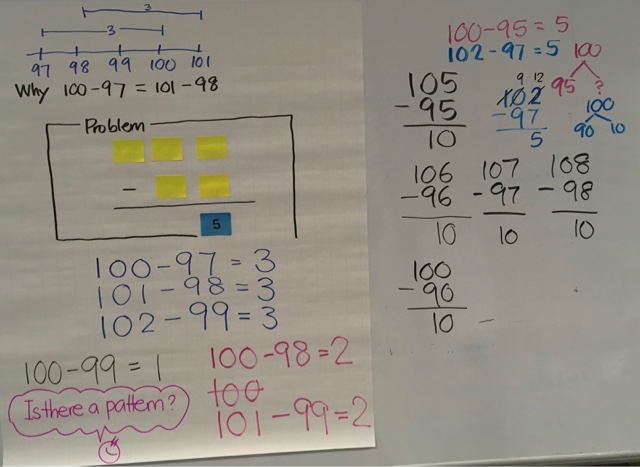 3
3
97 98 99 100 101
Why 100-97 = 101-98
Problem
-
5
100-97 = 3
101-98 = 3
102-99 = 3
100-99 = 1
Is there a pattern?
100-98=2
100
101-99=2
100-95=5
102-97=5
100
95 ?
105
-95
10
9 12
102
-97
5
100
90 10
106
-96
10
107
-97
10
108
-98
10
100
-90
10